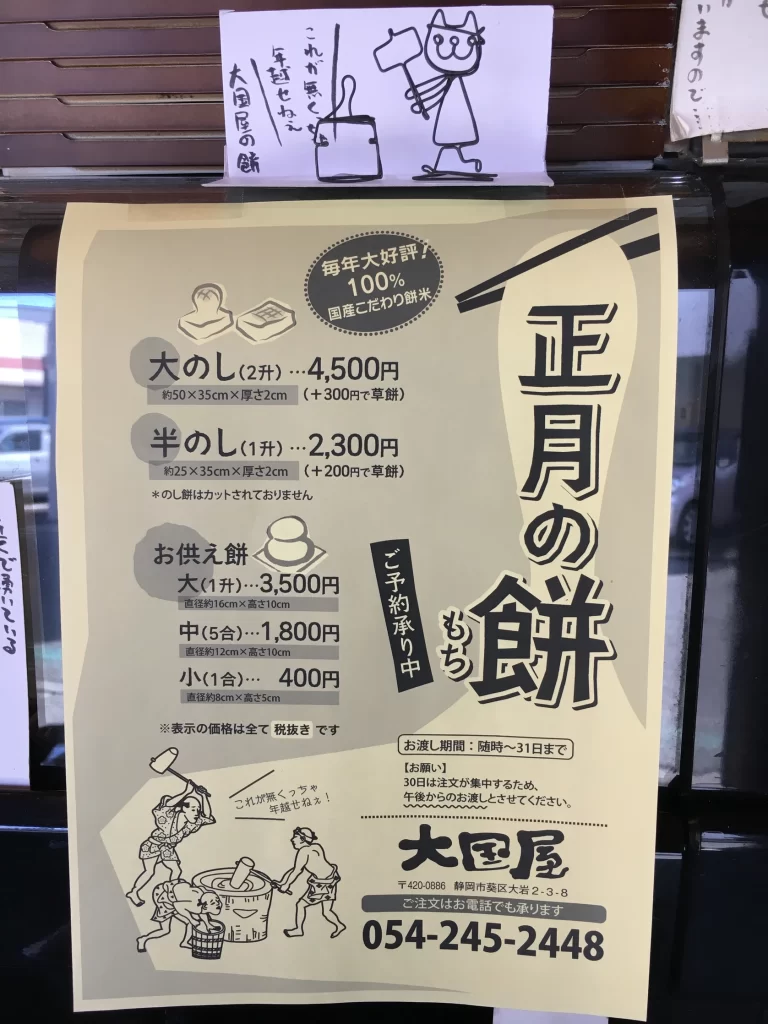 これが無くっちゃ
年越せねぇ
大国屋の餅
いますので…
毎年大好評！
100%
国産こだわり餅米
正月の餅
もち
ご予約承り中
大のし(2升)…4,500円
約50×35cm×厚さ2cm (＋300円で草餅)
半のし(1升)…2,300円
約25×35cm×厚さ2cm (＋200円で草餅)
＊のし餅はカットされておりません
お供え餅
大(1升)…3,500円
直径約16cm×高さ10cm
中(5合)…1,800円
直径約12cm×高さ10cm
小(1合)… 400円
直径約8cm×高さ5cm
※表示の価格は全て 税抜き です
お渡し期間：随時〜31日まで
【お願い】
30日は注文が集中するため、
午後からのお渡しとさせてください。
これが無くっちゃ
年越せねぇ！
大国屋
〒420-0886 静岡市葵区大岩2-3-8
ご注文はお電話でも承ります
054-245-2448
で湧いている